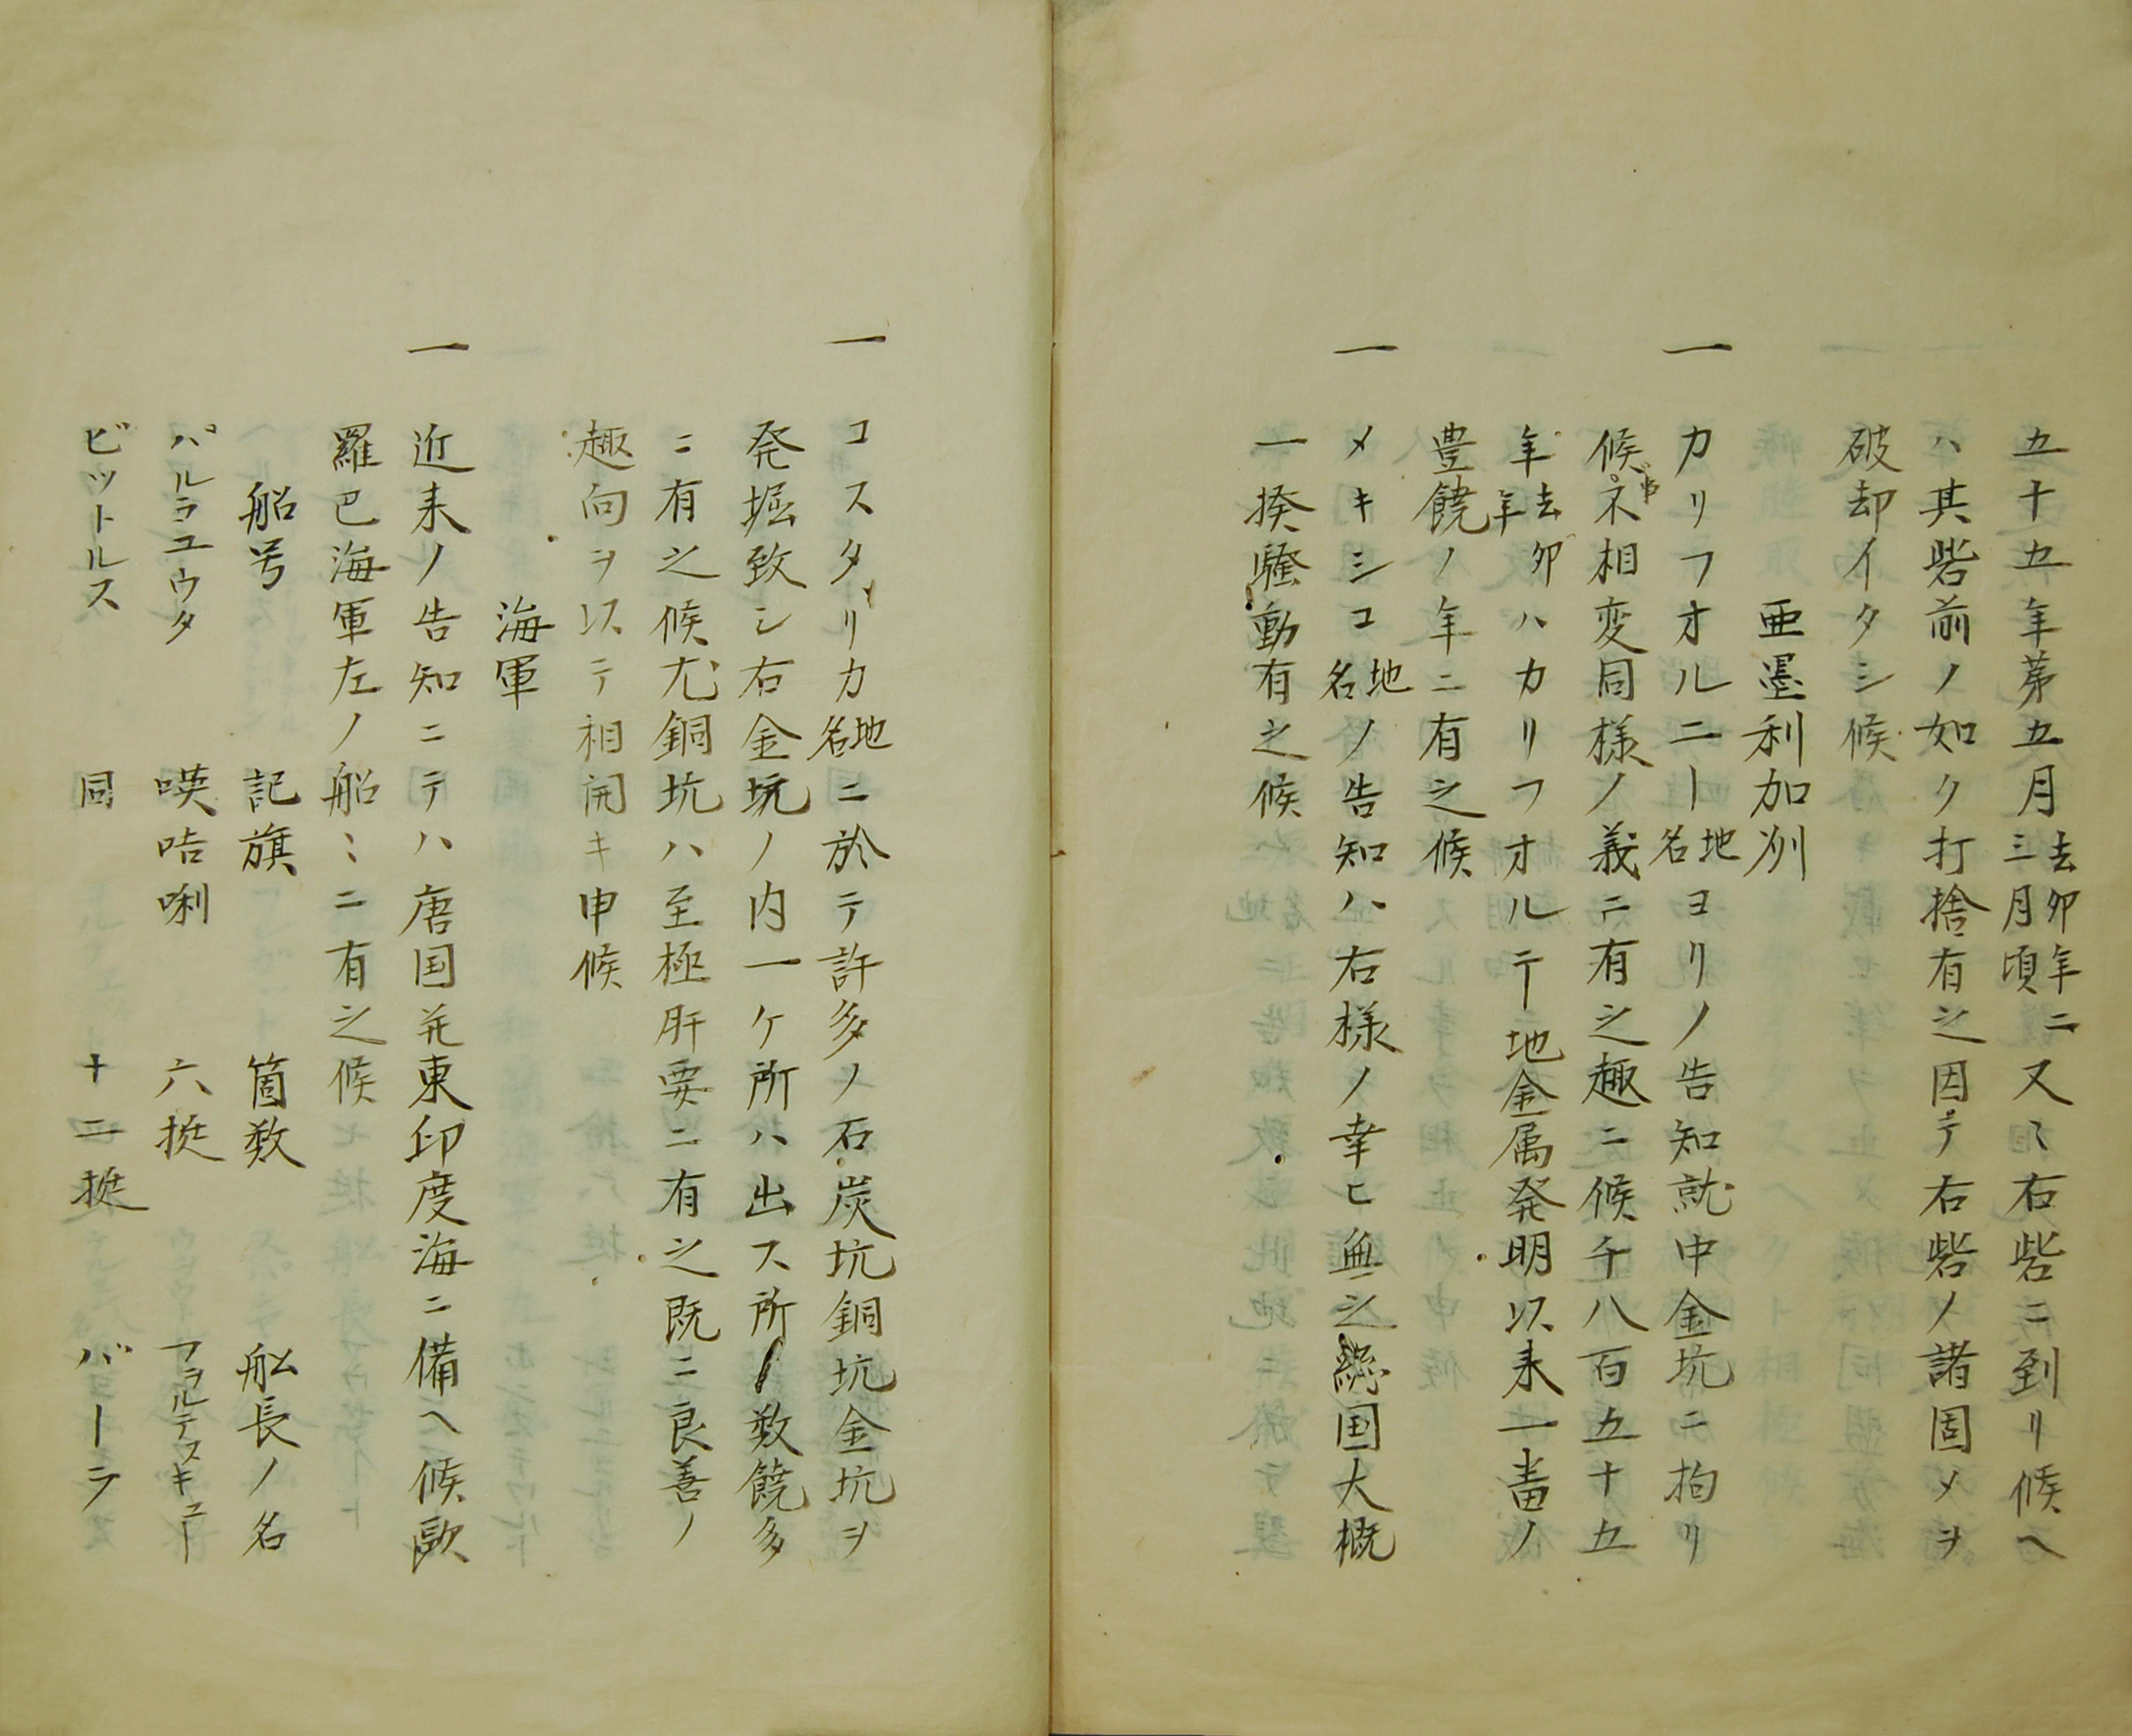 五十五年第五月去卯年ニ三月頃又〻右砦ニ到リ候ヘ
ハ其砦前ノ如ク打捨有之因テ右砦ノ諸固メヲ
破却イタシ候
亜墨利加州
一カリフオルニー地名ヨリノ告知就中金坑ニ拘リ
候事ネ相変同様ノ義ニ有之趣ニ候千八百五十五
年去卯年ハカリフオルテー地金属発明以来一番ノ
豊饒ノ年ニ有之候
一メキシコ地名ノ告知ハ右様ノ幸ヒ無之総国大概
一揆騒動有之候
一コスタリカ地名ニ於テ許多ノ石炭坑銅坑金坑ヲ
発掘致シ右金坑ノ内一ケ所ハ出ス所ノ数饒多
ニ有之候尤銅坑ハ至極肝要ニ有之既ニ良善ノ
趣向ヲ以テ相開キ申候
海軍
一近来ノ告知ニテハ唐国并東印度海ニ備ヘ候欧
羅巴海軍左ノ船〻ニ有之候
船号 記旗 箇数 船長ノ名
パルラコウタ 暎咭唎 六挺 フヲルテスキュー
ビットルス 同 十二挺 バーラ